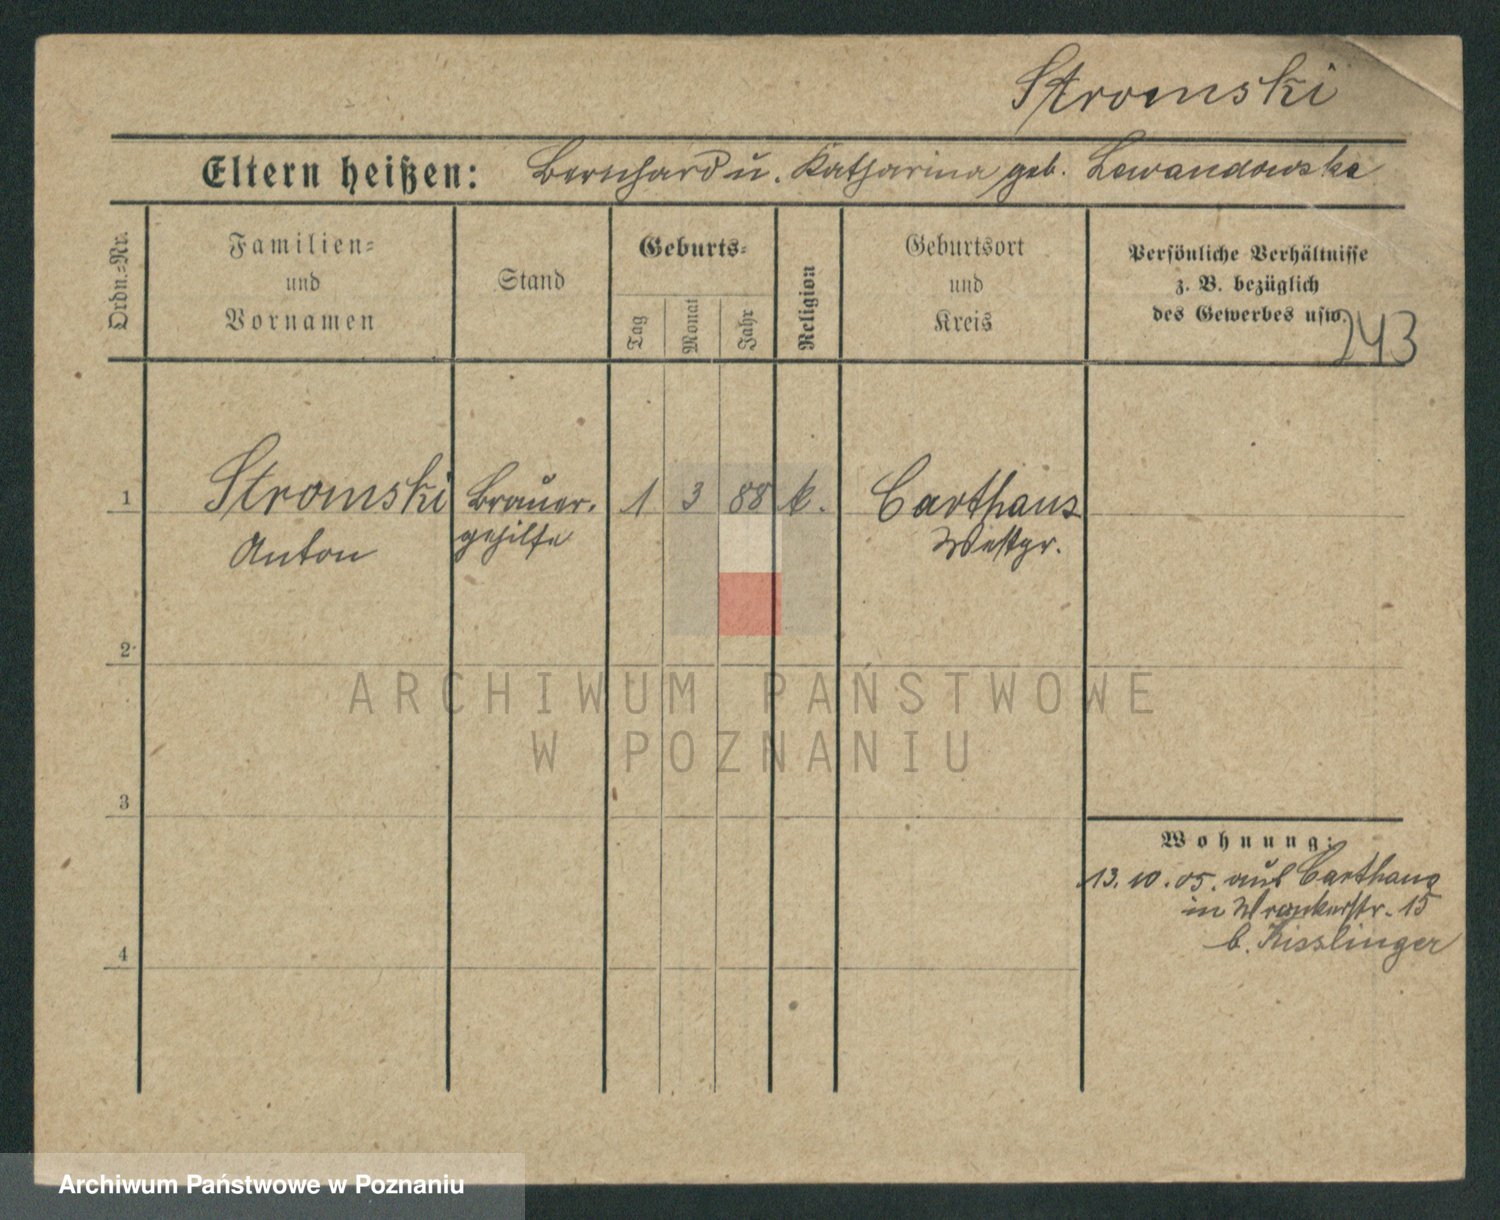 Stromski
Eltern heißen: Bernhard u. Katharina geb. Lewandowska
Ordn.=Nr.
Familien=
und
Vornamen
Stand
Geburts=
Tag
Monat
Jahr
Religion
Geburtsort
und
Kreis
Persönliche Verhältnisse
z. B. bezüglich
des Gewerbes usw.
243
1 Stromski Brauer. 1 3 88 k. Carthaus
Anton gehilfe Westpr.
2
ARCHIWUM PAŃSTWOWE
W POZNANIU
3
Wohnung:
13.10.05. aus Carthaus
in Wronkerstr. 15
b. Kisslinger
4
Archiwum Państwowe w Poznaniu